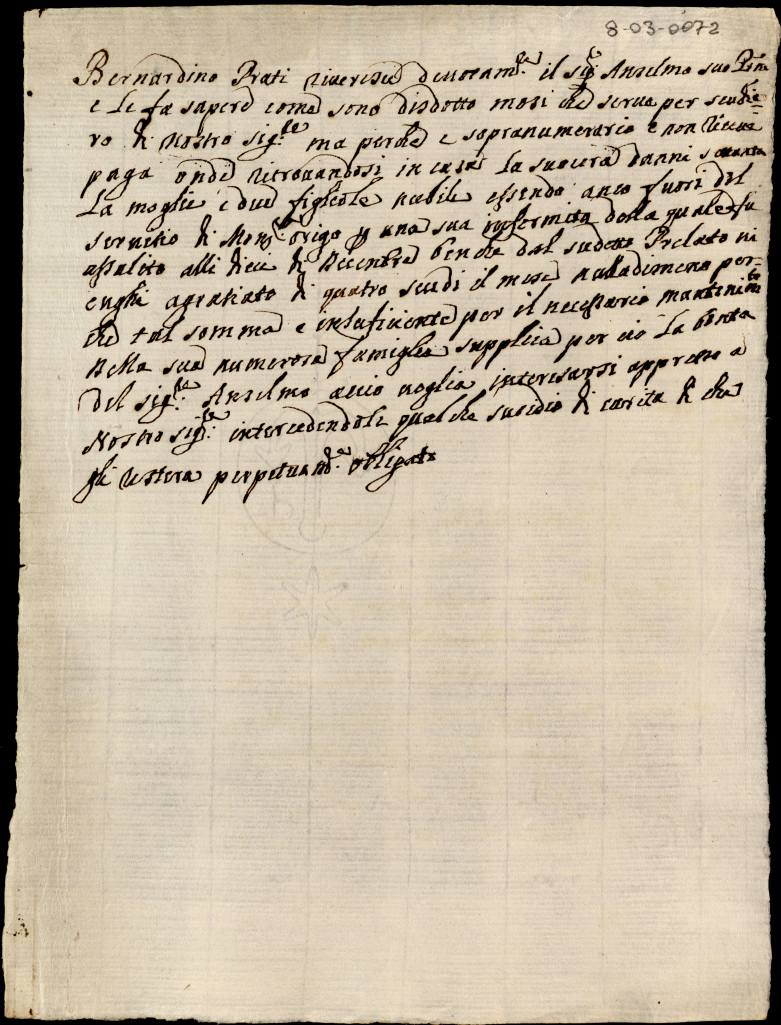 8-03-0072
Bernardino Prati riverisce devotam.te il sig.r Anselmo suo
e le fa sapere come sono disdotto mesi che serve per scudie=
ro di Nostro sig.re ma perche e sopranumerario e non riceve
paga onde ritrovandosi in casa la suocera danni setanta
La moglie e due figliole nubile essendo anco fuori del
servitio di Mons.r origo p una sua infermita dalla quale fu
assalito alli dieci di Dicembre benche dal sudetto Prelato ni
enghi agratiato di quatro scudi il mese nulladimeno per=
che tal somma e insuficiente per il necessario mantenim.to
della sua numerosa famiglia supplica per cio la bonta
del sig.re Anselmo accio voglia interesarsi appresso a
Nostro sig.re intercedendole qualche susidio di carita di che
gli restera perpetuam.te obligato